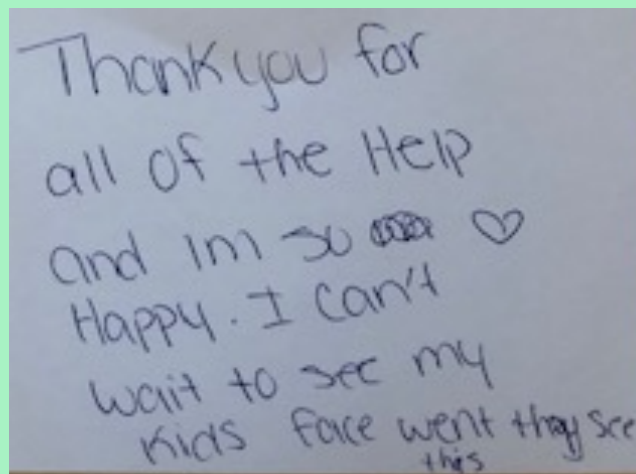 Thank you for
all of the Help
and Im so ♡
Happy. I can't
wait to see my
kids face went they see
this